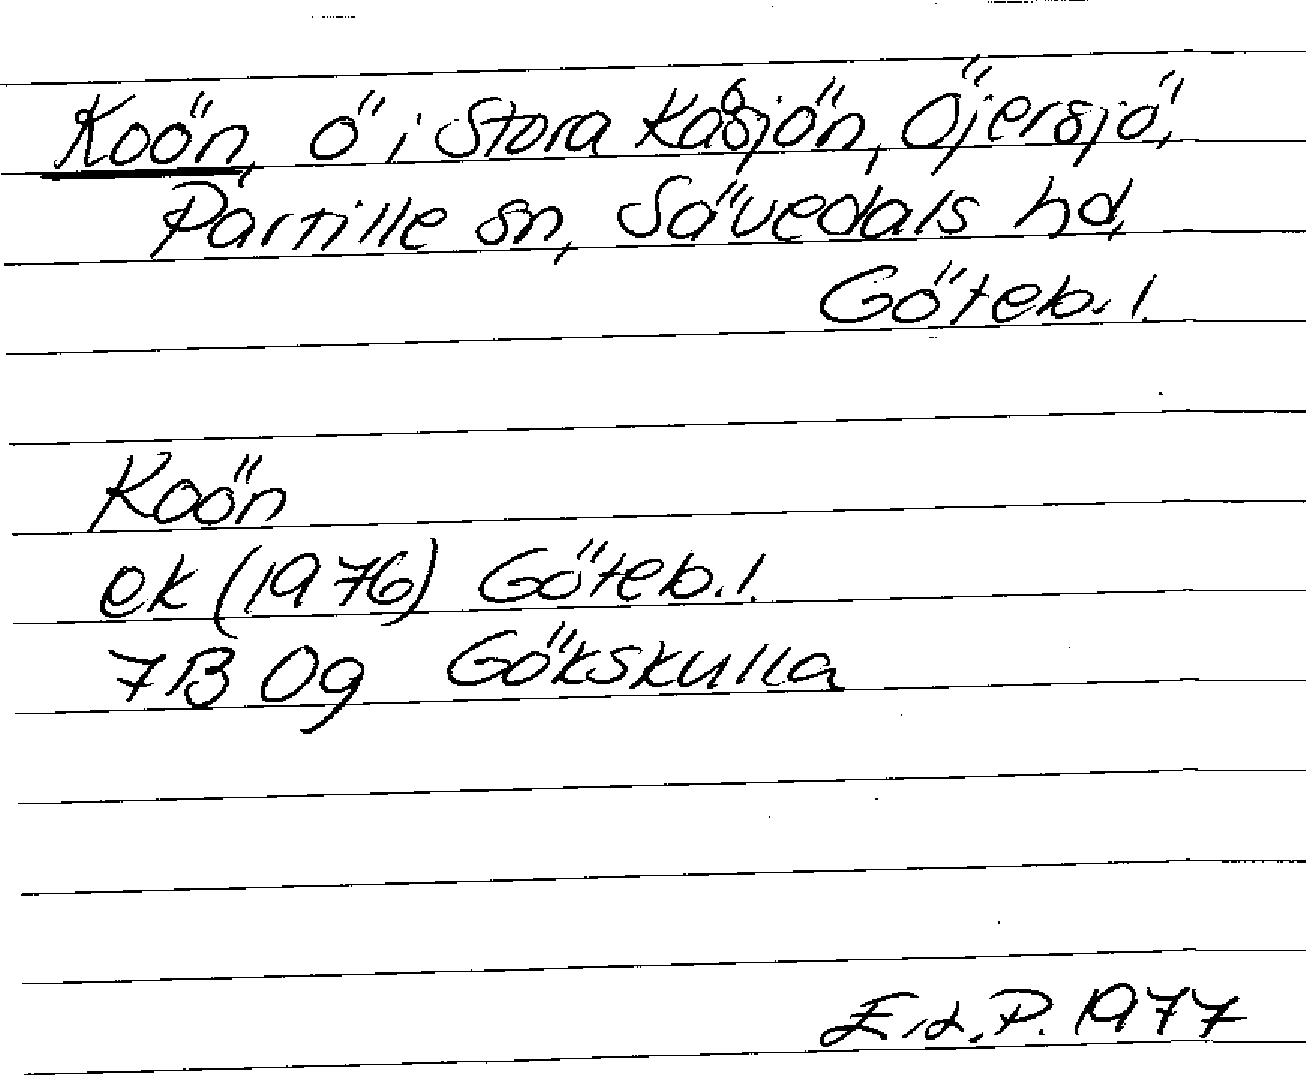 Koön, ö i Stora Kåsjön, Öjersjö,
Partille sn, Sävedals hd,
Göteb. l.
Koön
ek (1976) Göteb. l.
7B 0g Gökskulla
E.d.P. 1977